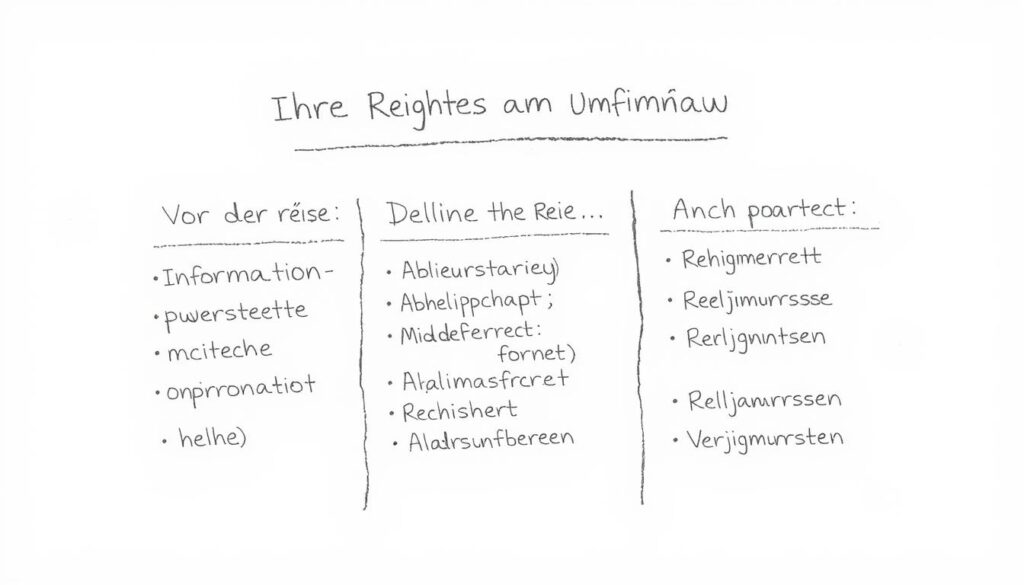 Ihre Reightes am Umfimñaw
Vor der rëise:
• Information-
• puwersteette
• mciteche
• onpirronatiot
• helhe)
Delline the Reie...
• Ablieurstariey)
• Abhelippchapt;
• Middeferrect:
fornet)
• Atalimasfrcret
• Rechishert
• Aladrsunfbereen
Anch poartect:
• Rehigmerrett
• Reeljimurrssse
• Rerljgnuntsen
• Relljamurrssen
• Verjigmurrsten